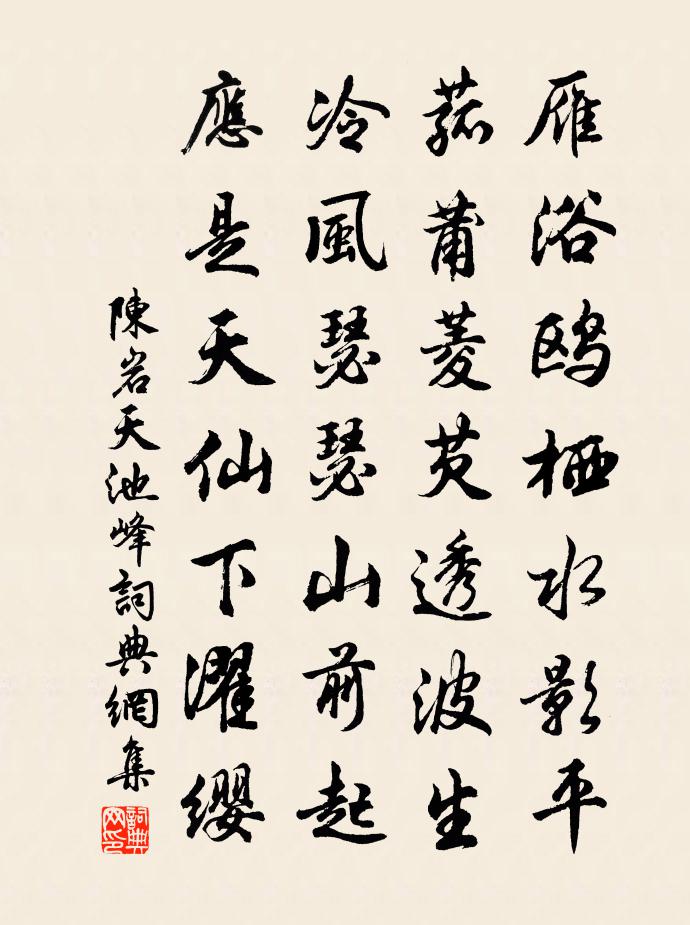 雁浴鸥栖水影平
菰莆菱芡透波生
冷風瑟瑟山前起
應是天仙下濯纓
陳岩天池峰詞典網集
詞典网印